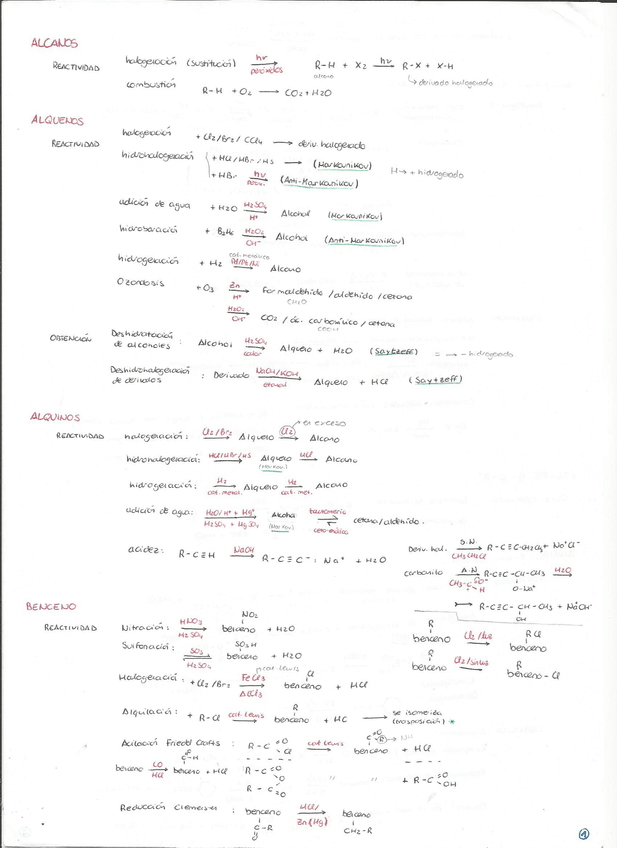 ALCANOS
REACTIVIDAD
halogeración (sustitución) hν peróxidos R-H + X2 hν R-X + X-H
alcano
derivado halogenado
combustión R-H + O2 → CO2 + H2O
ALQUENOS
REACTIVIDAD
halogeración + Cl2/Br2/CCl4 → deriv. halogerado
hidrohalogeración + HCl/HBr/HS → (Markovnikov) H → + hidrogerado
+ HBr hν (Anti-Markovnikov)
adición de agua + H2O H2SO4 H+ Alcohol (Markovnikov)
hidroboración + B2H6 H2O2 OH- Alcohol (Anti-Markovnikov)
hidrogeración + H2 cat. metálico Pd/Pt/Ni Alcano
Ozonolisis + O3 Zn H+ Formaldehido/aldehido/cetona
CH2O
H2O2 OH- CO2 / ác. carboxílico / cetona
COOH
OBTENCIÓN
Deshidratación de alcoholes : Alcohol H2SO4 calor Alqueno + H2O (Saytzeff) = → - hidrogerado
Deshidrohalogeración de derivados : Derivado NaOH/KOH etanol Alqueno + HCl (Saytzeff)
ALQUINOS
REACTIVIDAD
halogeración: Cl2/Br2 Alqueno Cl2 Alcano
en exceso
hidrohalogeración: HCl/HBr/HS Alqueno HCl Alcano
(Markov)
hidrogeración: H2 cat. metal. Alqueno H2 cat. met. Alcano
adición de agua: H2O/H+ + Hg+ H2SO4 + HgSO4 Alcohol (Markov) tautomería ceto-enólica cetona/aldehido.
acidez: R-C≡H NaOH R-C≡C-: Na+ + H2O
Deriv. hal. S.N. CH3CH2Cl R-C≡C-CH2CH3 + Na+Cl-
carbonilo A.N R-C≡C-CH-CH3 H2O
O-Na+
R-C≡C-CH-CH3 + NaOH
OH
BENCENO
REACTIVIDAD
Nitración: HNO3 H2SO4 benceno + H2O
NO2
Sulfonación: SO3 H2SO4 benceno + H2O
SO3H
Halogeración: + Cl2/Br2 FeCl3 AlCl3 benceno + HCl
Cl
R benceno Cl2/luz RCl benceno
R benceno Cl2/sin luz R benceno-Cl
Alquilación: + R-Cl cat. Lewis benceno + HC → se isomeriza (trasposición) *
R
Acilación Friedel Crafts : R-C=O Cl cat Lewis benceno + HCl
benceno CO HCl benceno + HCl R-C=O O R-C=O " " + R-C=O OH
Reducción Clemensen : benceno HCl/ Zn(Hg) benceno
C-R CH2-R
O
1